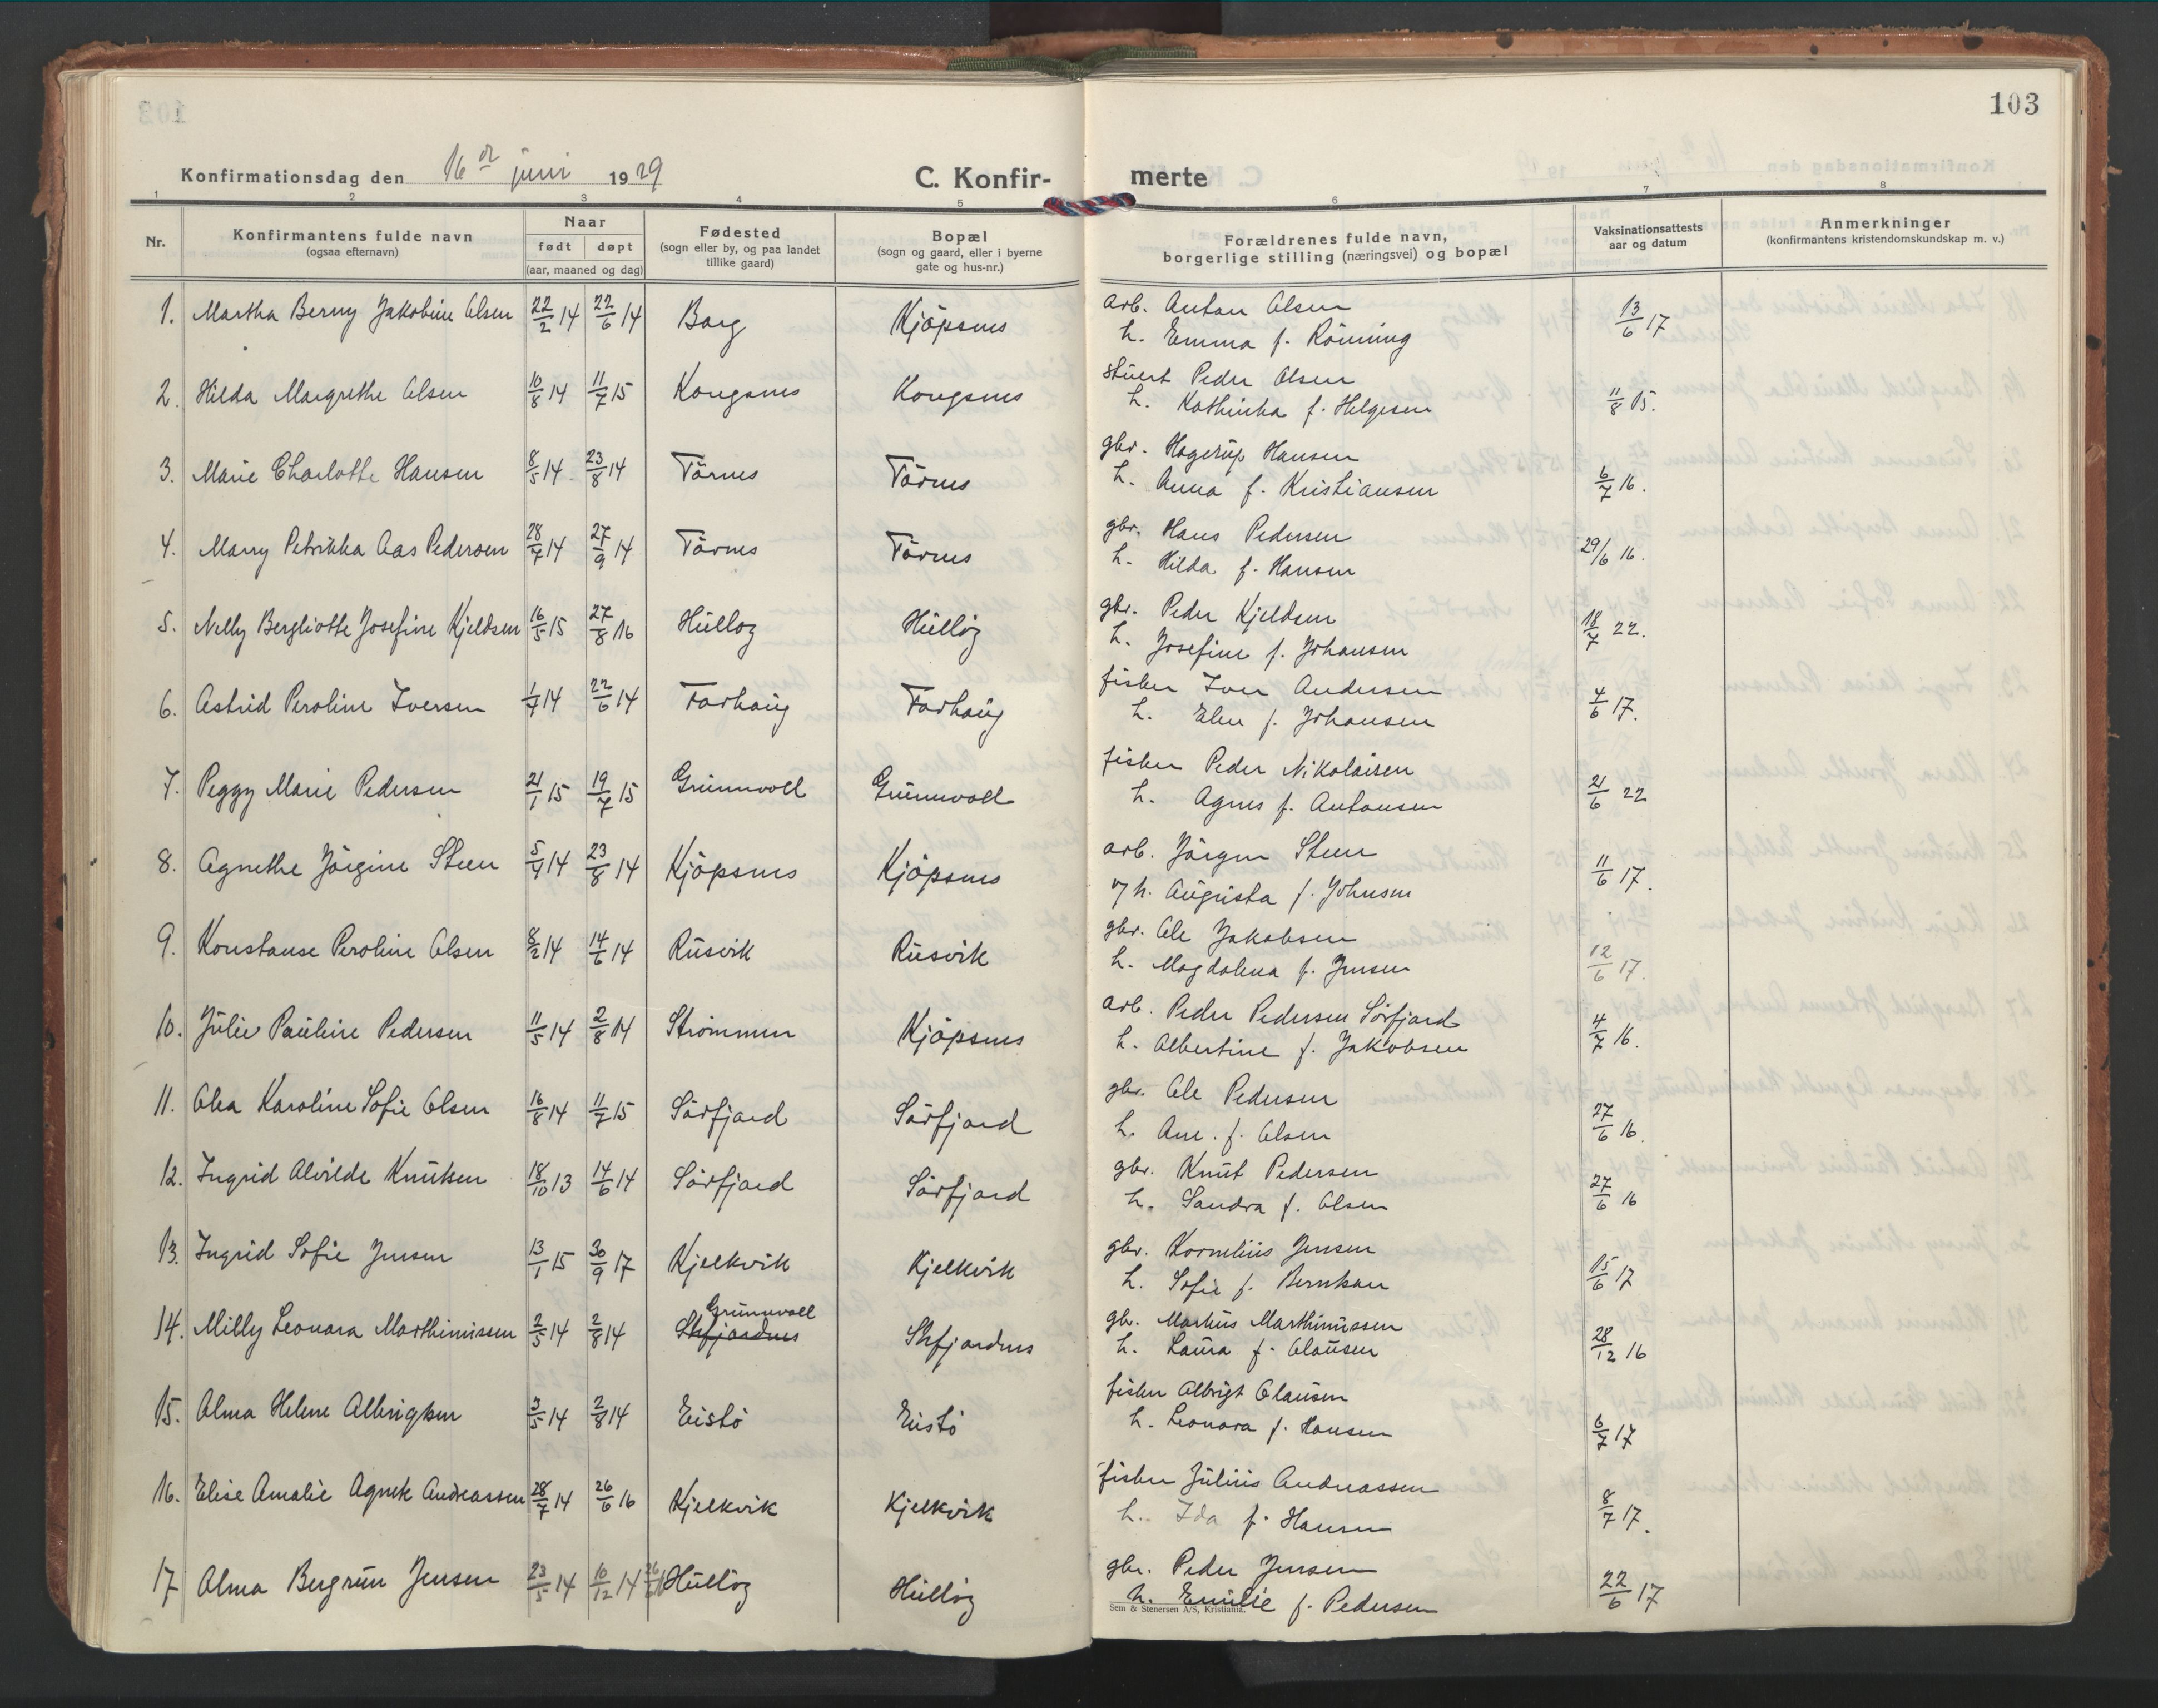 103
Konfirmationsdag den 16de juni 1929 C. Konfir- merte
1 2 3 4 5 6 7 8
Nr. Konfirmantens fulde navn (ogsaa efternavn) Naar født døpt (aar, maaned og dag) Fødested (sogn eller by, og paa landet tillike gaard) Bopæl (sogn og gaard, eller i byerne gate og hus-nr.) Forældrenes fulde navn, borgerlige stilling (næringsvei) og bopæl Vaksinationsattests aar og datum Anmerkninger (konfirmantens kristendomskundskap m. v.)
1. Martha Berny Jakobine Olsen 22/2 14 22/6 14 Borg Kjöpsnes arb. Anton Olsen 13/6 17
h. Emma f. Rönning
2. Hilda Margrethe Olsen 10/8 14 11/7 15 Kongsnes Kongsnes stuert Peder Olsen 11/8 15.
h. Kathinka f. Helgesen
3. Marie Charlotte Hansen 8/5 14 23/8 14 Törnes Törnes gbr. Hagerup Hansen 6/7 16.
h. Anna f. Kristiansen
4. Marry Petrikka Aas Pedersen 28/7 14 27/9 14 Törnes Törnes gbr. Hans Pedersen 29/6 16.
h. Hilda f. Hansen
5. Nelly Bergliotte Josefine Kjeldsen 16/5 15 27/8 16 Hulløy Hulløy gbr. Peder Kjeldsen 18/7 22.
h. Josefine f. Johansen
6. Astrid Peroline Iversen 1/7 14 22/6 14 Forhaug Forhaug fisker Iver Andersen 4/6 17.
h. Elen f. Johansen
7. Peggy Marie Pedersen 21/1 15 19/7 15 Grunnvoll Grunnvoll fisker Peder Nikolaisen 21/6 22
h. Agnes f. Antonsen
8. Agnethe Jörgine Steen 5/4 14 23/8 14 Kjöpsnes Kjöpsnes arb. Jörgen Steen 11/6 17.
o/h. Augusta f. Johnsen
9. Konstanse Peroline Olsen 8/2 14 14/6 14 Rusvik Rusvik gbr. Ole Jakobsen 12/6 17.
h. Magdalena f. Jensen
10. Julie Pauline Pedersen 11/5 14 2/8 14 Strömmen Kjöpsnes arb. Peder Pedersen Sörfjord 4/7 16.
h. Albertine f. Jakobsen
11. Olea Karoline Sofie Olsen 16/8 14 11/7 15 Sörfjord Sörfjord gbr. Ole Pedersen 27/6 16.
h. Ane. f. Olsen
12. Ingrid Alvilde Knutsen 18/10 13 14/6 14 Sörfjord Sörfjord gbr. Knut Pedersen 27/6 16
h. Sandra f. Olsen
13. Ingrid Sofie Jensen 13/1 15 30/9 17 Kjelkvik Kjelkvik gbr. Kornelius Jensen 15/6 17
h. Sofie f. Berntsen
Grunnvoll
14. Milly Leonara Marthinussen 2/5 14 2/8 14 Skfjordnes Skfjordnes gbr. Markus Marthinussen 28/12 16
h. Laura f. Olausen
15. Alma Helene Albrigtsen 3/5 14 2/8 14 Eistö Eistö fisker Albrigt Olausen 6/7 17
h. Leonora f. Hansen
16. Elise Amalie Agnete Andreassen 28/7 14 26/6 16 Kjelkvik Kjelkvik fisker Julius Andreassen 8/7 17.
h. Ida f. Hansen
17 Alma Bergrun Jensen 23/5 14 10/12 14 Hulløy Hulløy gbr. Peder Jensen 22/6 17
h. Emilie f. Pedersen
Sem & Stenersen A/S, Kristiania.